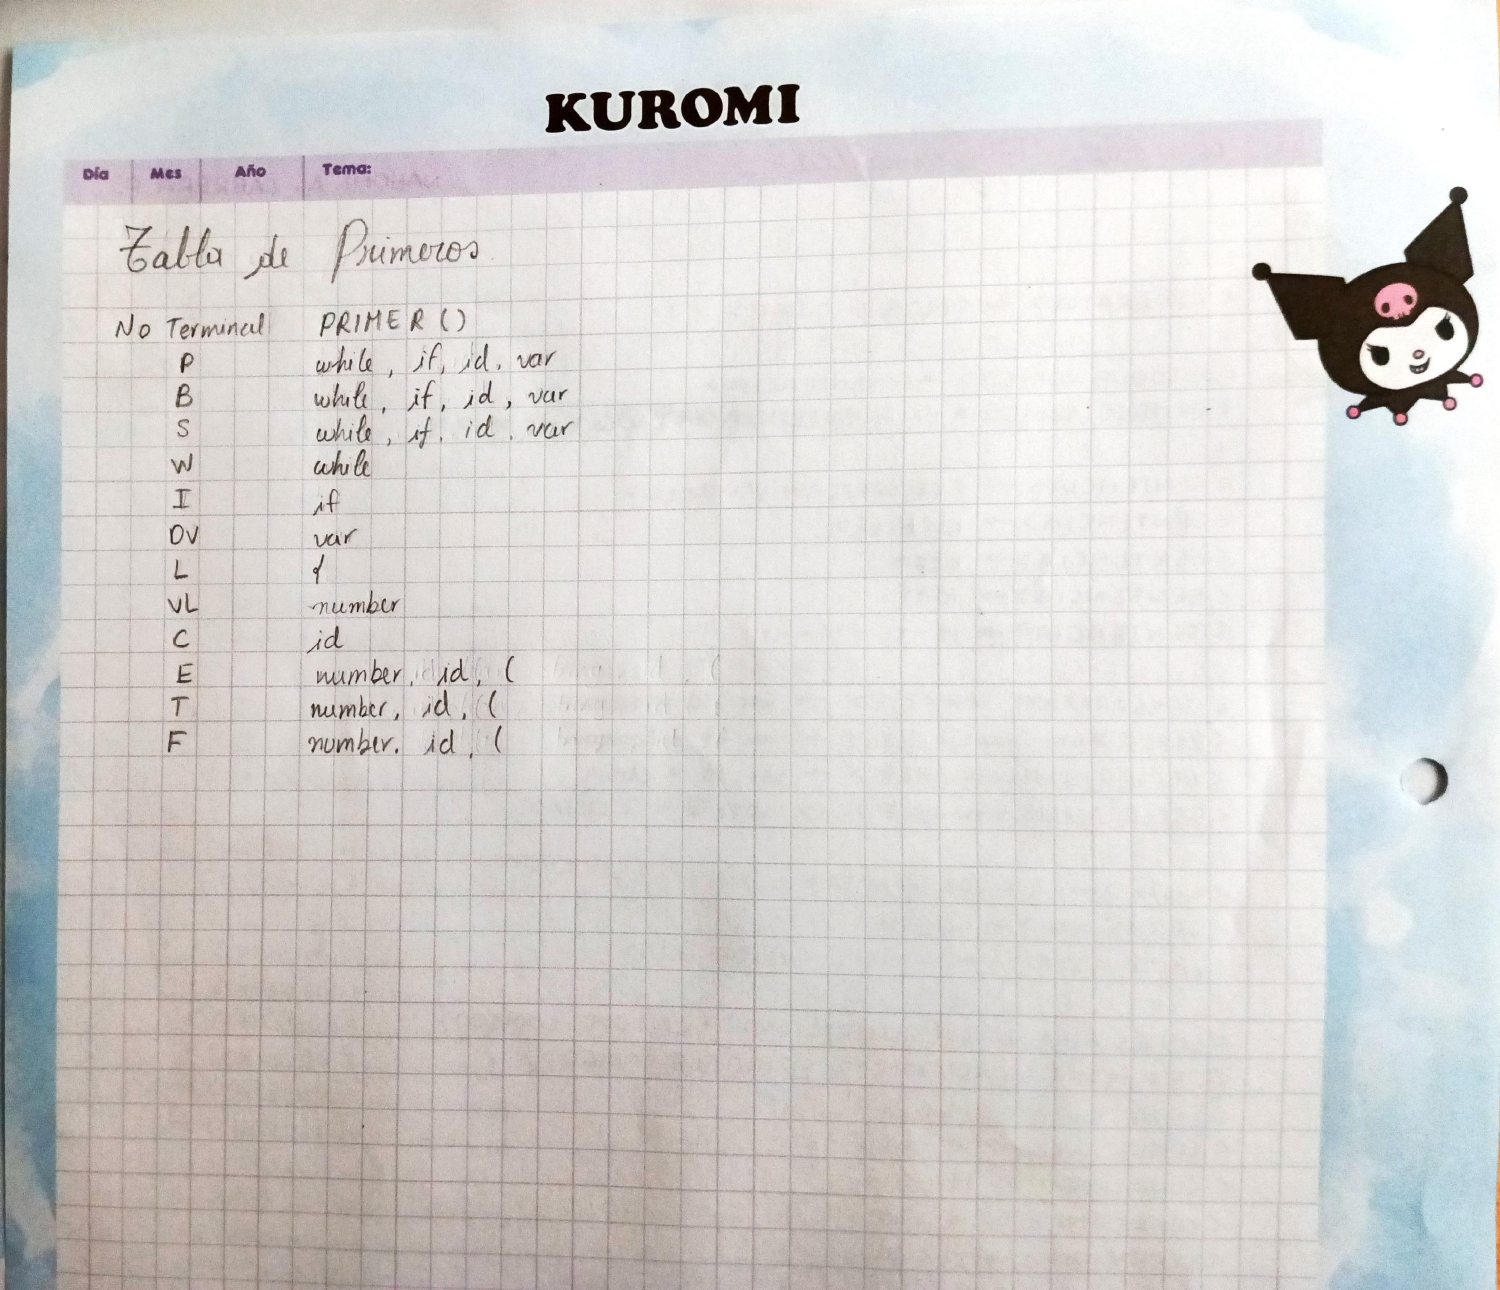 KUROMI
Día Mes Año Tema:
Tabla de Primeros
No Terminal PRIMER ()
P while, if, id, var
B while, if, id, var
S while, if, id, var
W while
I if
DV var
L {
VL number
C id
E number, id, (
T number, id, (
F number, id, (